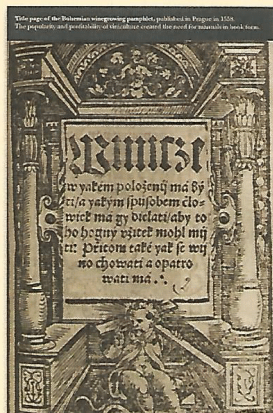 Title page of the Bohemian winegrowing pamphlet, published in Prague in 1558.
The popularity and profitability of viticulture created the need for manuals in book form.
Winicze
w yakém položenij má bý
ti/a yakým spuͦsobem člo-
wiek má gij dielati/aby to
ho hogný vžitek mohl mij
ti: Přitom také yak se wij
no chowati a opatro
wati má ∴